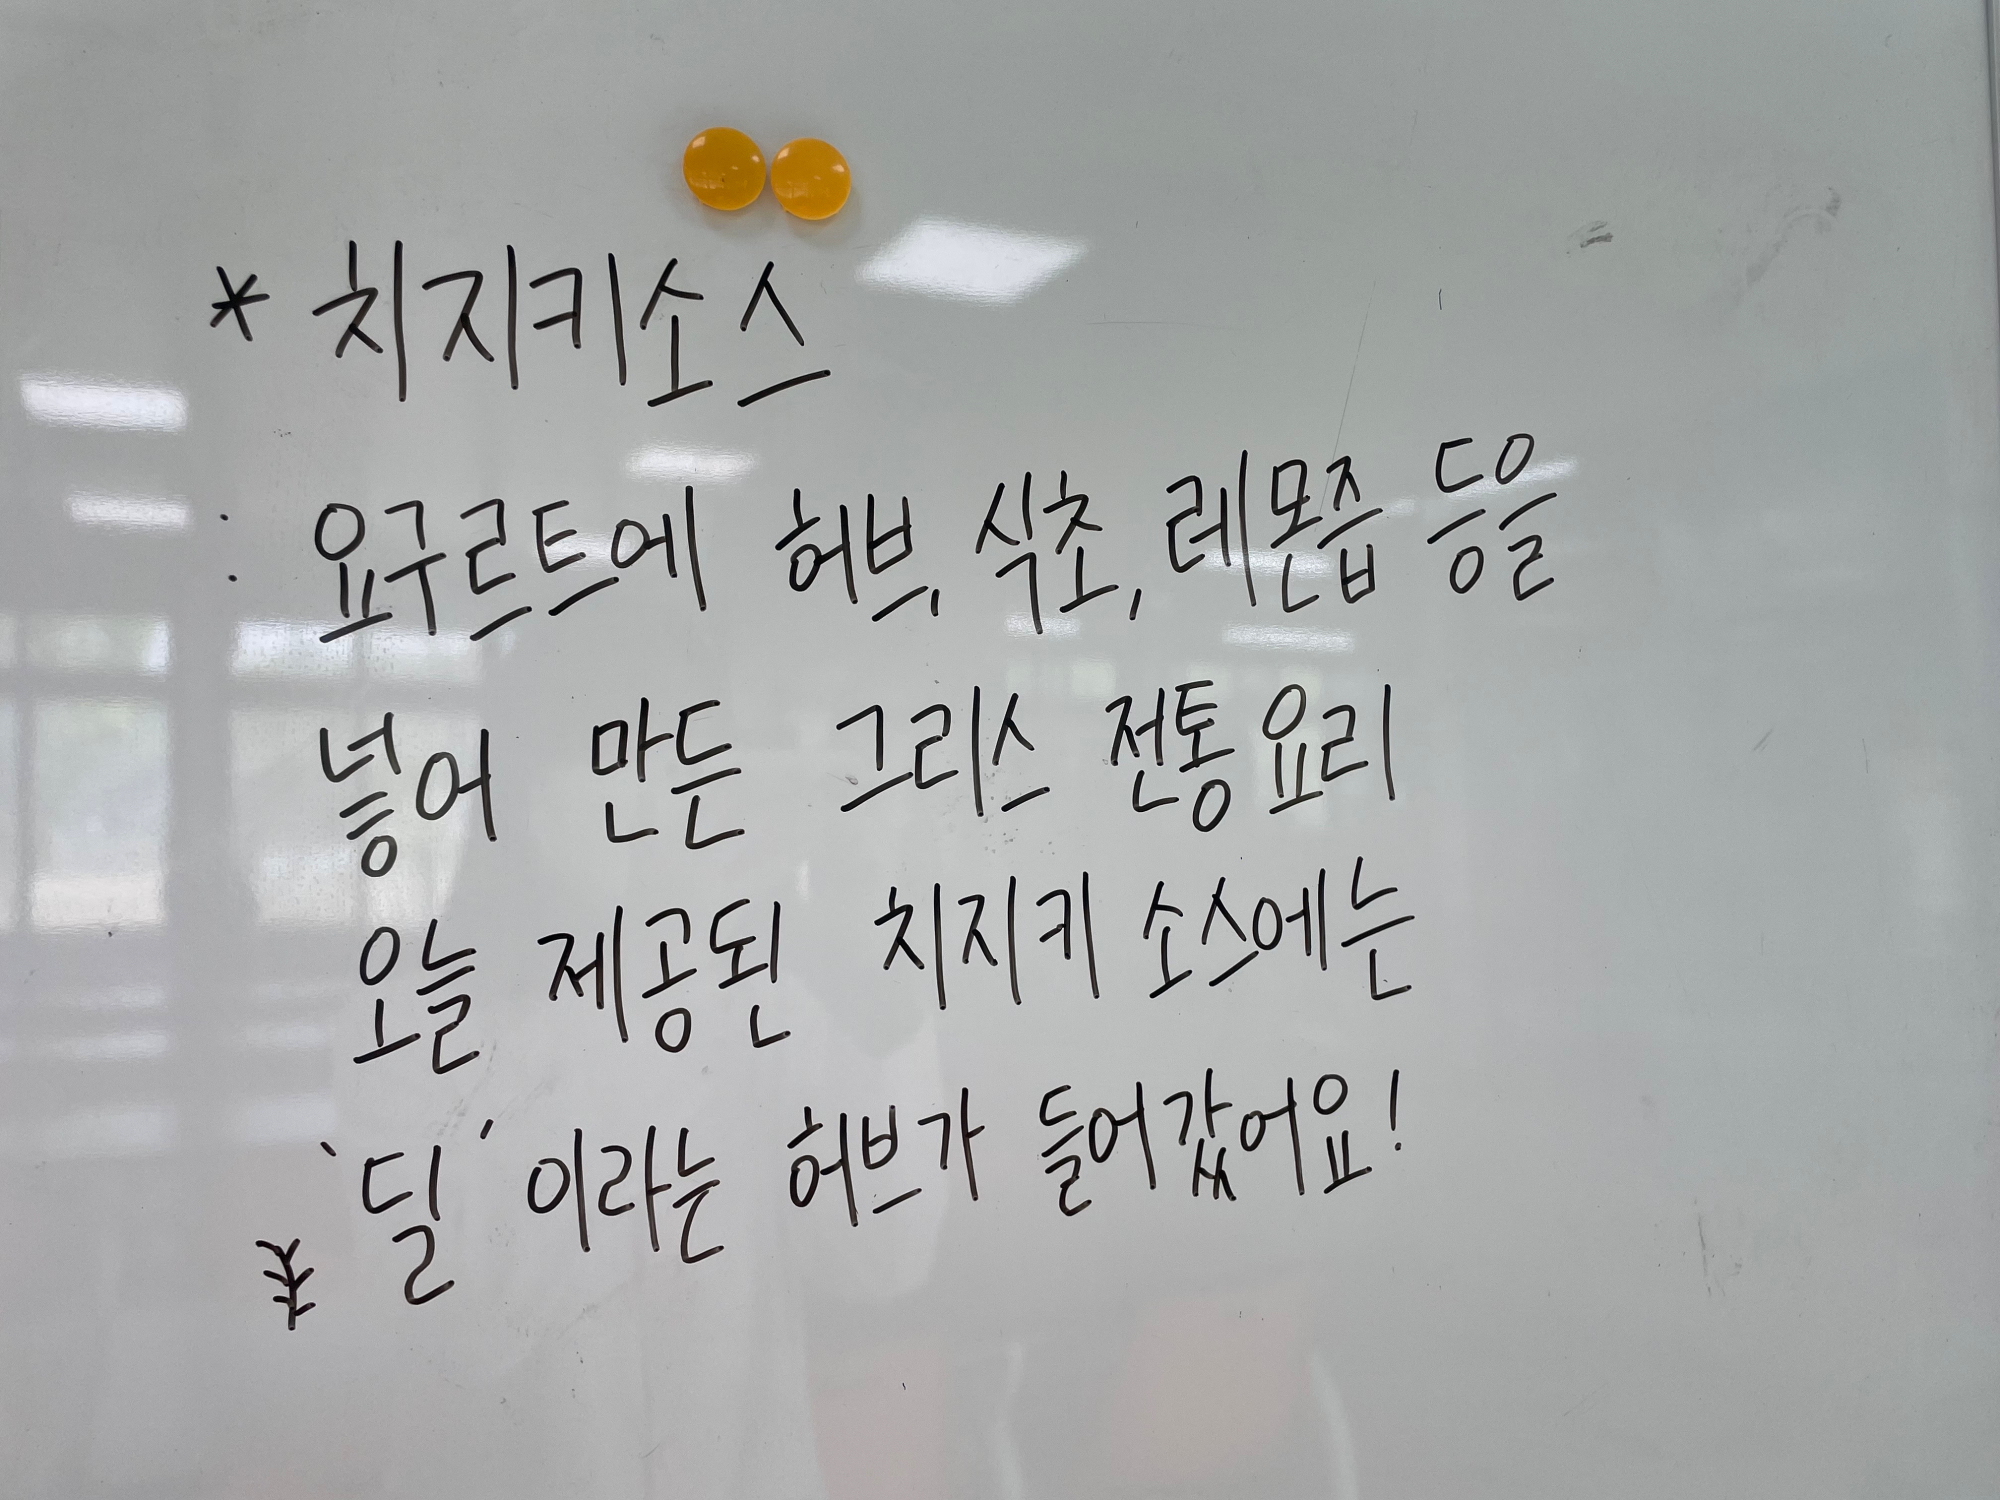 * 치지키소스
: 요구르트에 허브, 식초, 레몬즙 등을
넣어 만든 그리스 전통요리
오늘 제공된 치지키 소스에는
'딜' 이라는 허브가 들어갔어요!